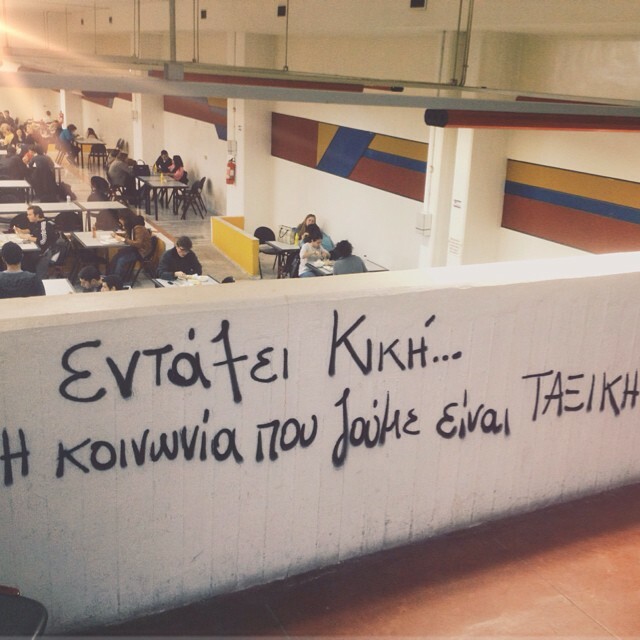 Εντάξει Κική...
Η κοινωνία που ζούμε είναι ΤΑΞΙΚΗ